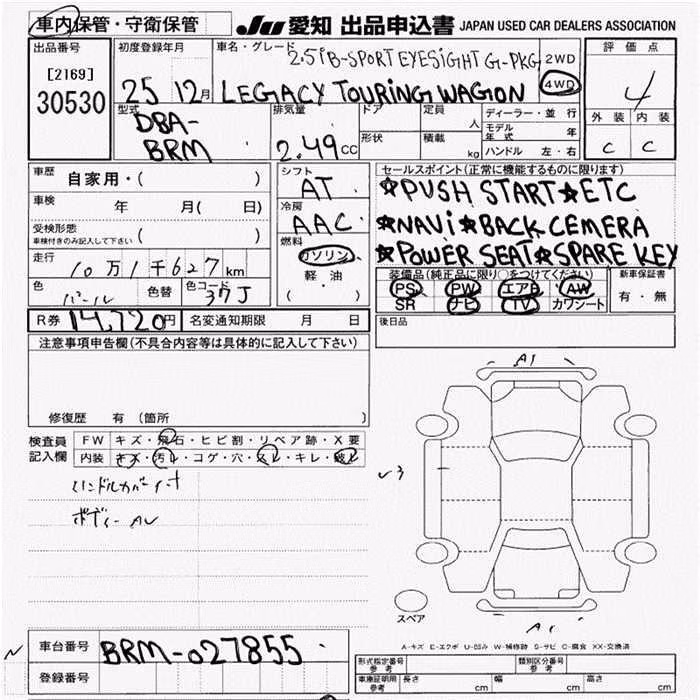 車内保管・守衛保管
JU 愛知 出品申込書 JAPAN USED CAR DEALERS ASSOCIATION
出品番号
[2169]
30530
初度登録年月
25 12月
車名・グレード
2.5iB-SPORT EYESIGHT G-PKG
LEGACY TOURING WAGON
2WD
4WD
評価点
4
外装 内装
C C
型式
DBA-
BRM
排気量
2.49cc
ドア
形状
定員 人
積載 kg
ディーラー・並行
モデル年式 年
ハンドル 左・右
車歴 自家用・( )
車検 年 月( 日)
受検形態
車検付きのみ記入して下さい ( )
走行 10万1千627km
色 パール 色替 色コード 37J
R券 14,720円 名変通知期限 月 日
シフト
AT
冷房
AAC
燃料
ガソリン
軽・油
( )
セールスポイント(正常に機能するものに限ります)
★PUSH START★ETC
★NAVi★BACK CEMERA
★POWER SEAT★SPARE KEY
装備品(純正品に限り○をつけてください)
PS PW エアB AW
SR ナビ TV カワシート
新車保証書
有・無
後日品
注意事項申告欄(不具合内容等は具体的に記入して下さい)
修復歴 有 (箇所 )
検査員記入欄
FW キズ・飛石・ヒビ割・リペア跡・X要
内装 キズ・汚レ・コゲ・穴・スレ・キレ・破レ
ハンドルカバー
ボディー AU
A1
✓3
スペア
A1
A-キズ E-エクボ U-凹み W-補修跡 S-サビ C-腐食 XX-交換済
N
車台番号 BRM-027855
登録番号
型式指定番号 参考
類別区分番号 参考
車庫証明用 参考 長さ cm 幅 cm 高さ cm